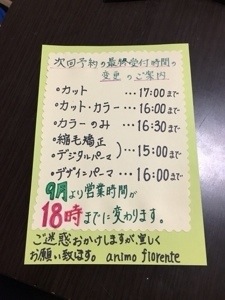 次回予約の最終受付時間の
変更のご案内
・カット …17:00まで
・カット・カラー …16:00まで
・カラーのみ …16:30まで
・縮毛矯正
・デジタルパーマ )…15:00まで
・デザインパーマ …16:00まで
9月より営業時間が
18時までに変わります。
ご迷惑おかけしますが、宜しく
お願い致します。animo fiorente